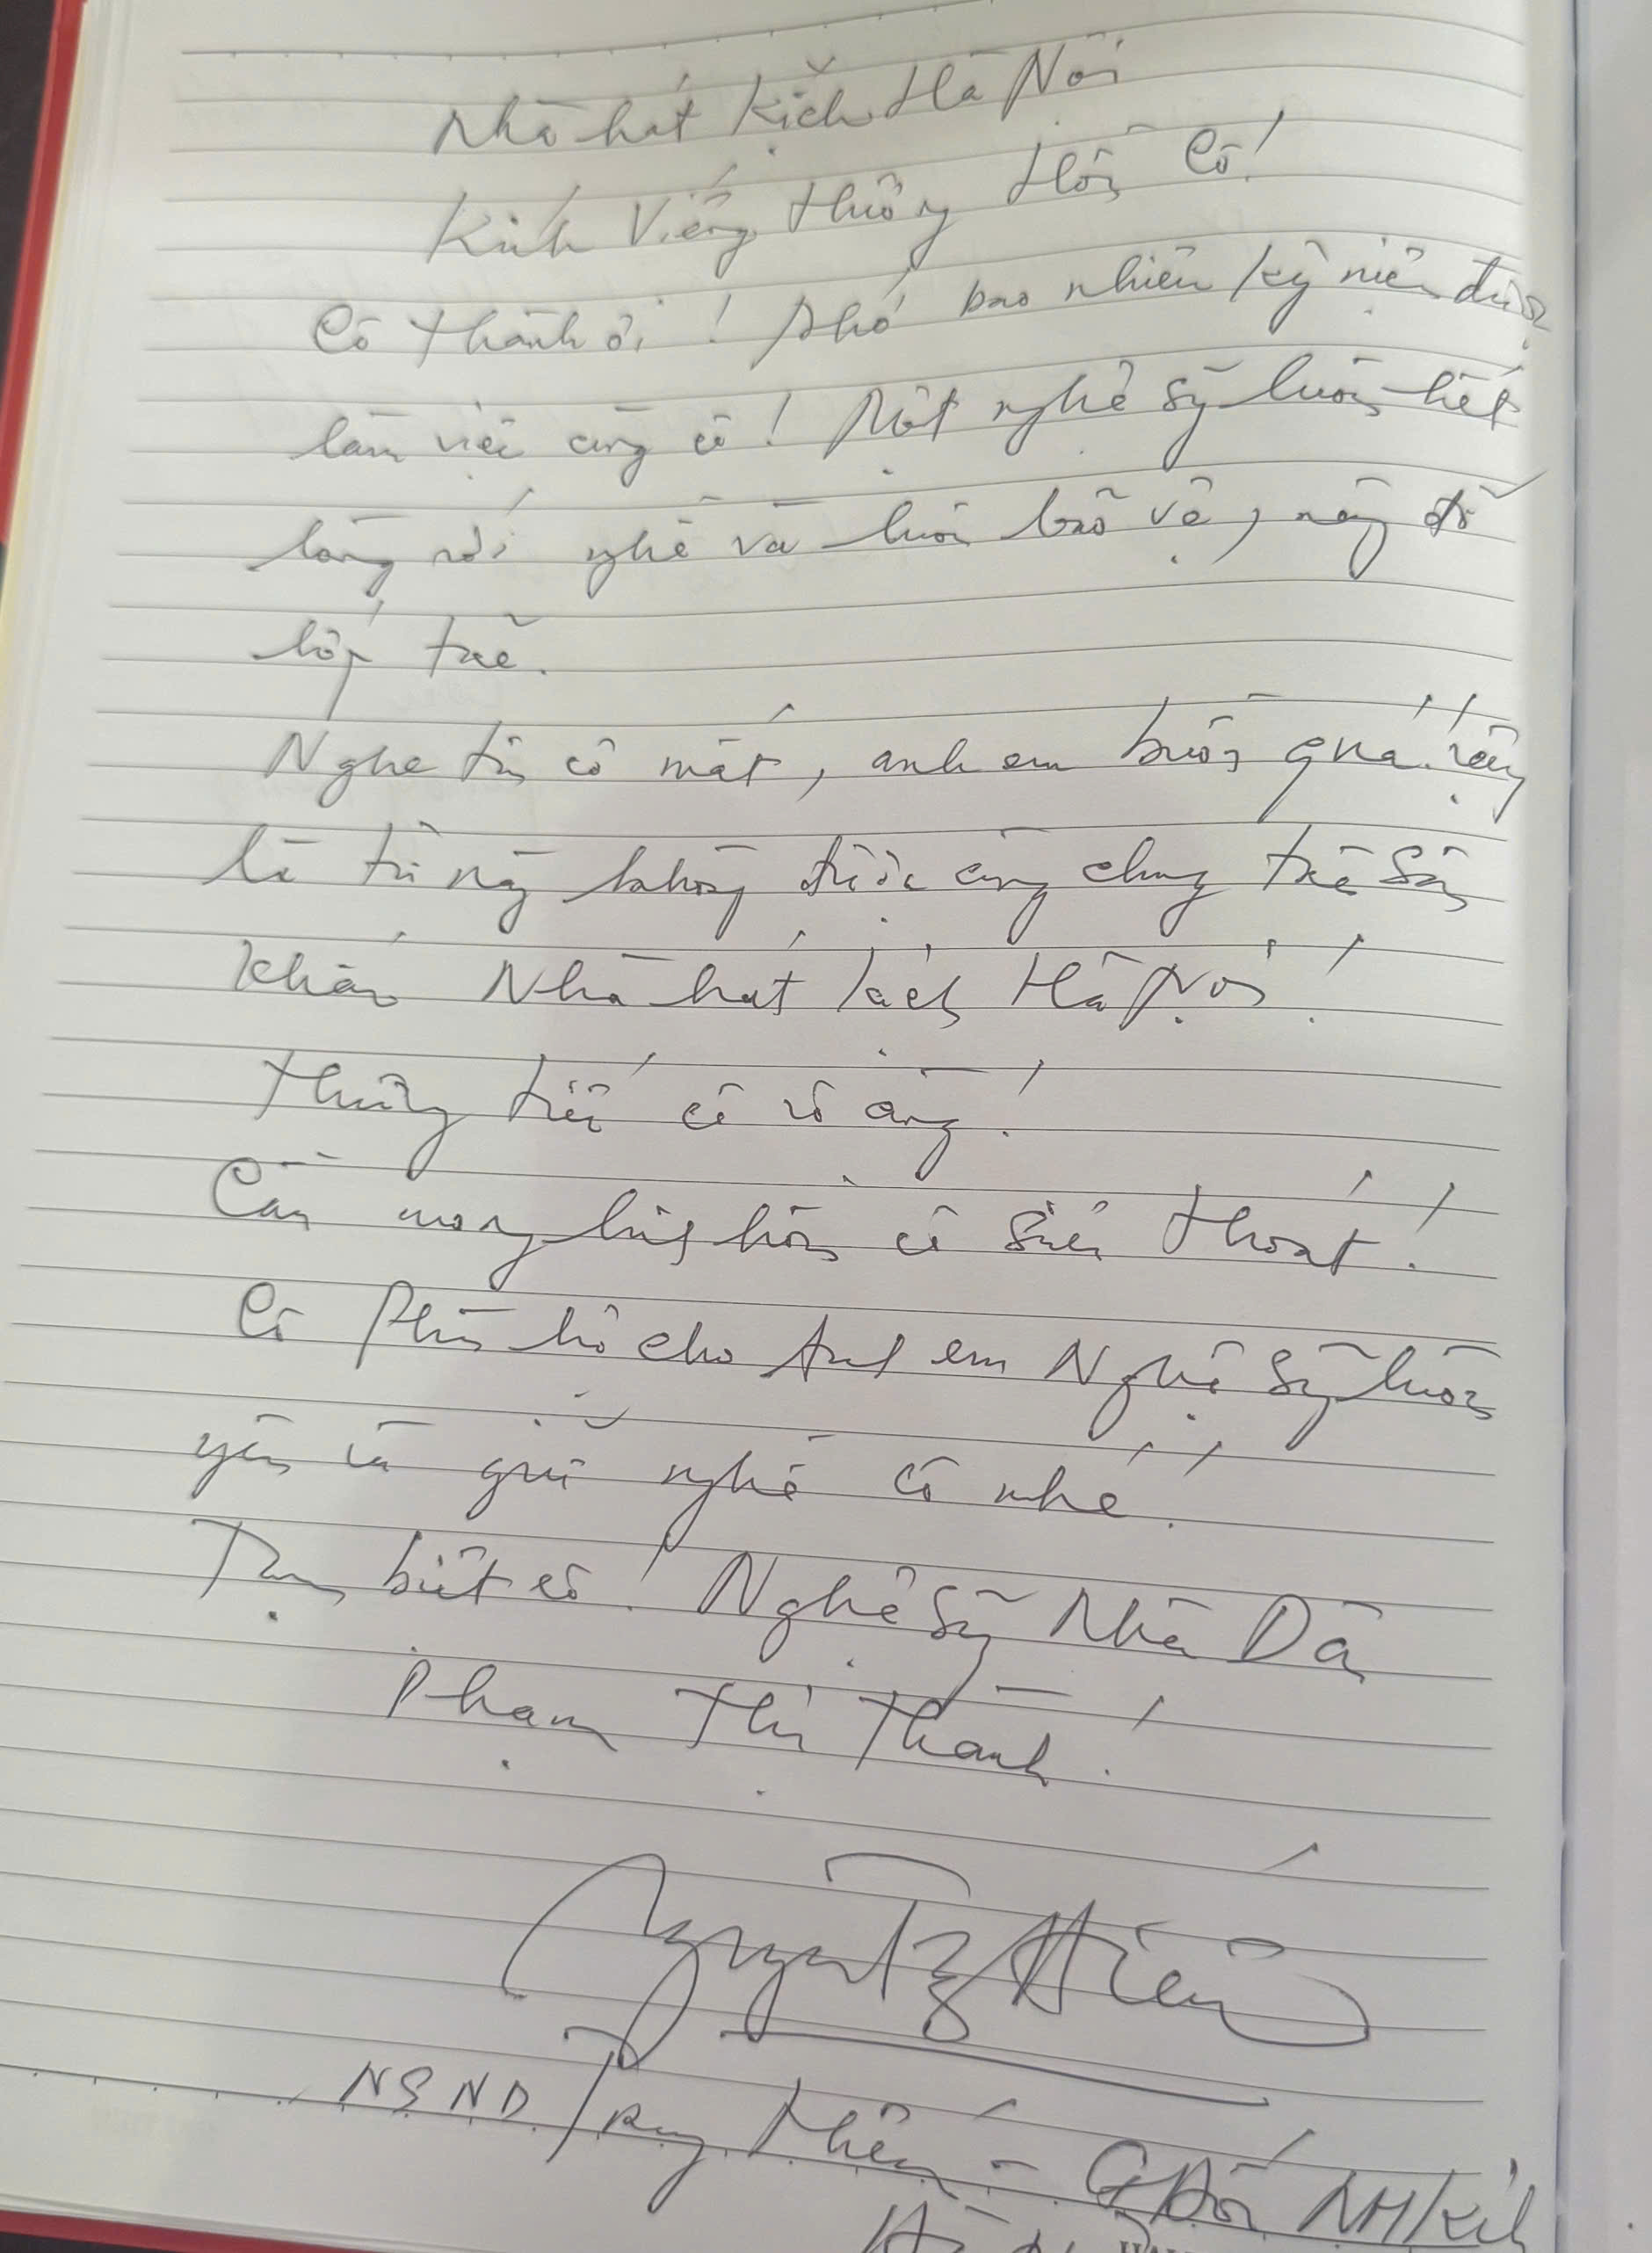 Nhà hát Kịch Hà Nội
Kính Viếng Hương Hồn Cô!
Cô Thành ơi! Nhớ bao nhiêu kỷ niệm được
làm việc cùng cô! Một nghệ sỹ luôn hết
lòng với nghề và luôn bảo vệ, nâng đỡ
lớp trẻ.
Nghe tin cô mất, anh em buồn quá! Vậy
là từ nay không được cùng chung trên Sân
khấu Nhà hát kịch Hà Nội!
Thương tiếc cô vô cùng!
Cầu mong linh hồn cô siêu thoát!
Cô Phù hộ cho Anh em Nghệ Sỹ luôn
yêu và giữ nghề cô nhé!
Tạm biệt cô! Nghệ Sỹ Nhân Dân
Phạm Thị Thành!
NSND Trung Hiếu - GĐốc NH Kịch
Hà Nội